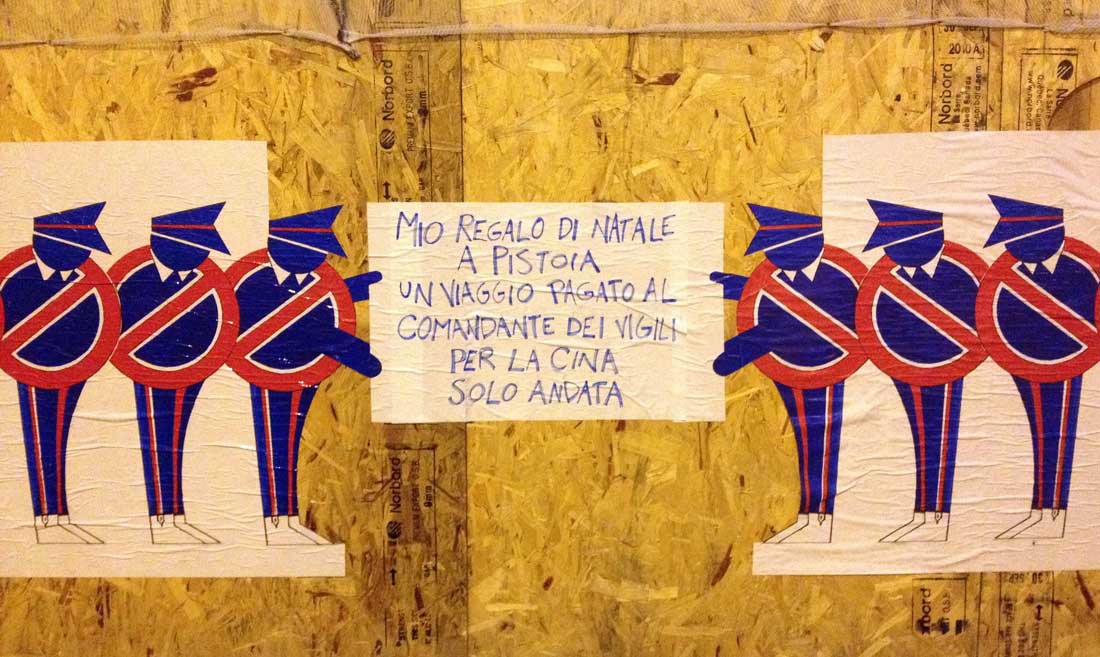 MIO REGALO DI NATALE
A PISTOIA
UN VIAGGIO PAGATO AL
COMANDANTE DEI VIGILI
PER LA CINA
SOLO ANDATA
Norbord
Norbord
2010 A
Norbord
9mm